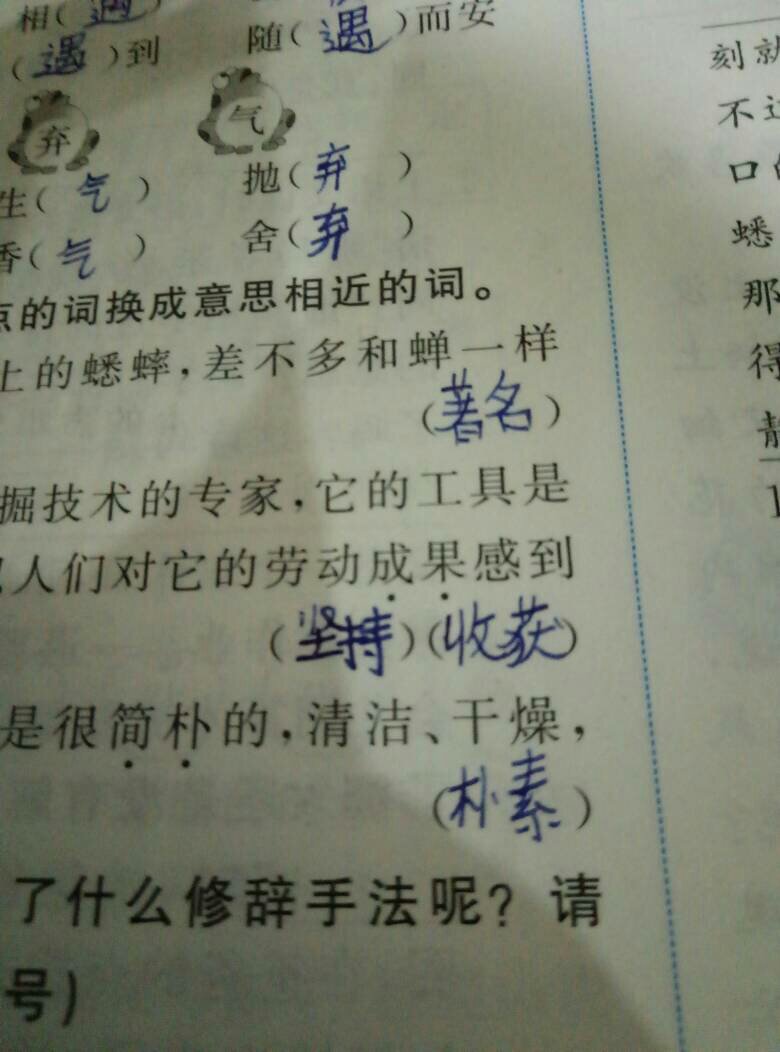 相(遇)
(遇)到 随(遇)而安
弃 气
生(气) 抛(弃)
香(气) 舍(弃)
点的词换成意思相近的词。
上的蟋蟀,差不多和蝉一样
(著名)
掘技术的专家,它的工具是
人们对它的劳动成果感到
(坚持)(收获)
是很简朴的,清洁、干燥,
(朴素)
了什么修辞手法呢?请
号)
刻就
不
口
蟋
那
得
静
1